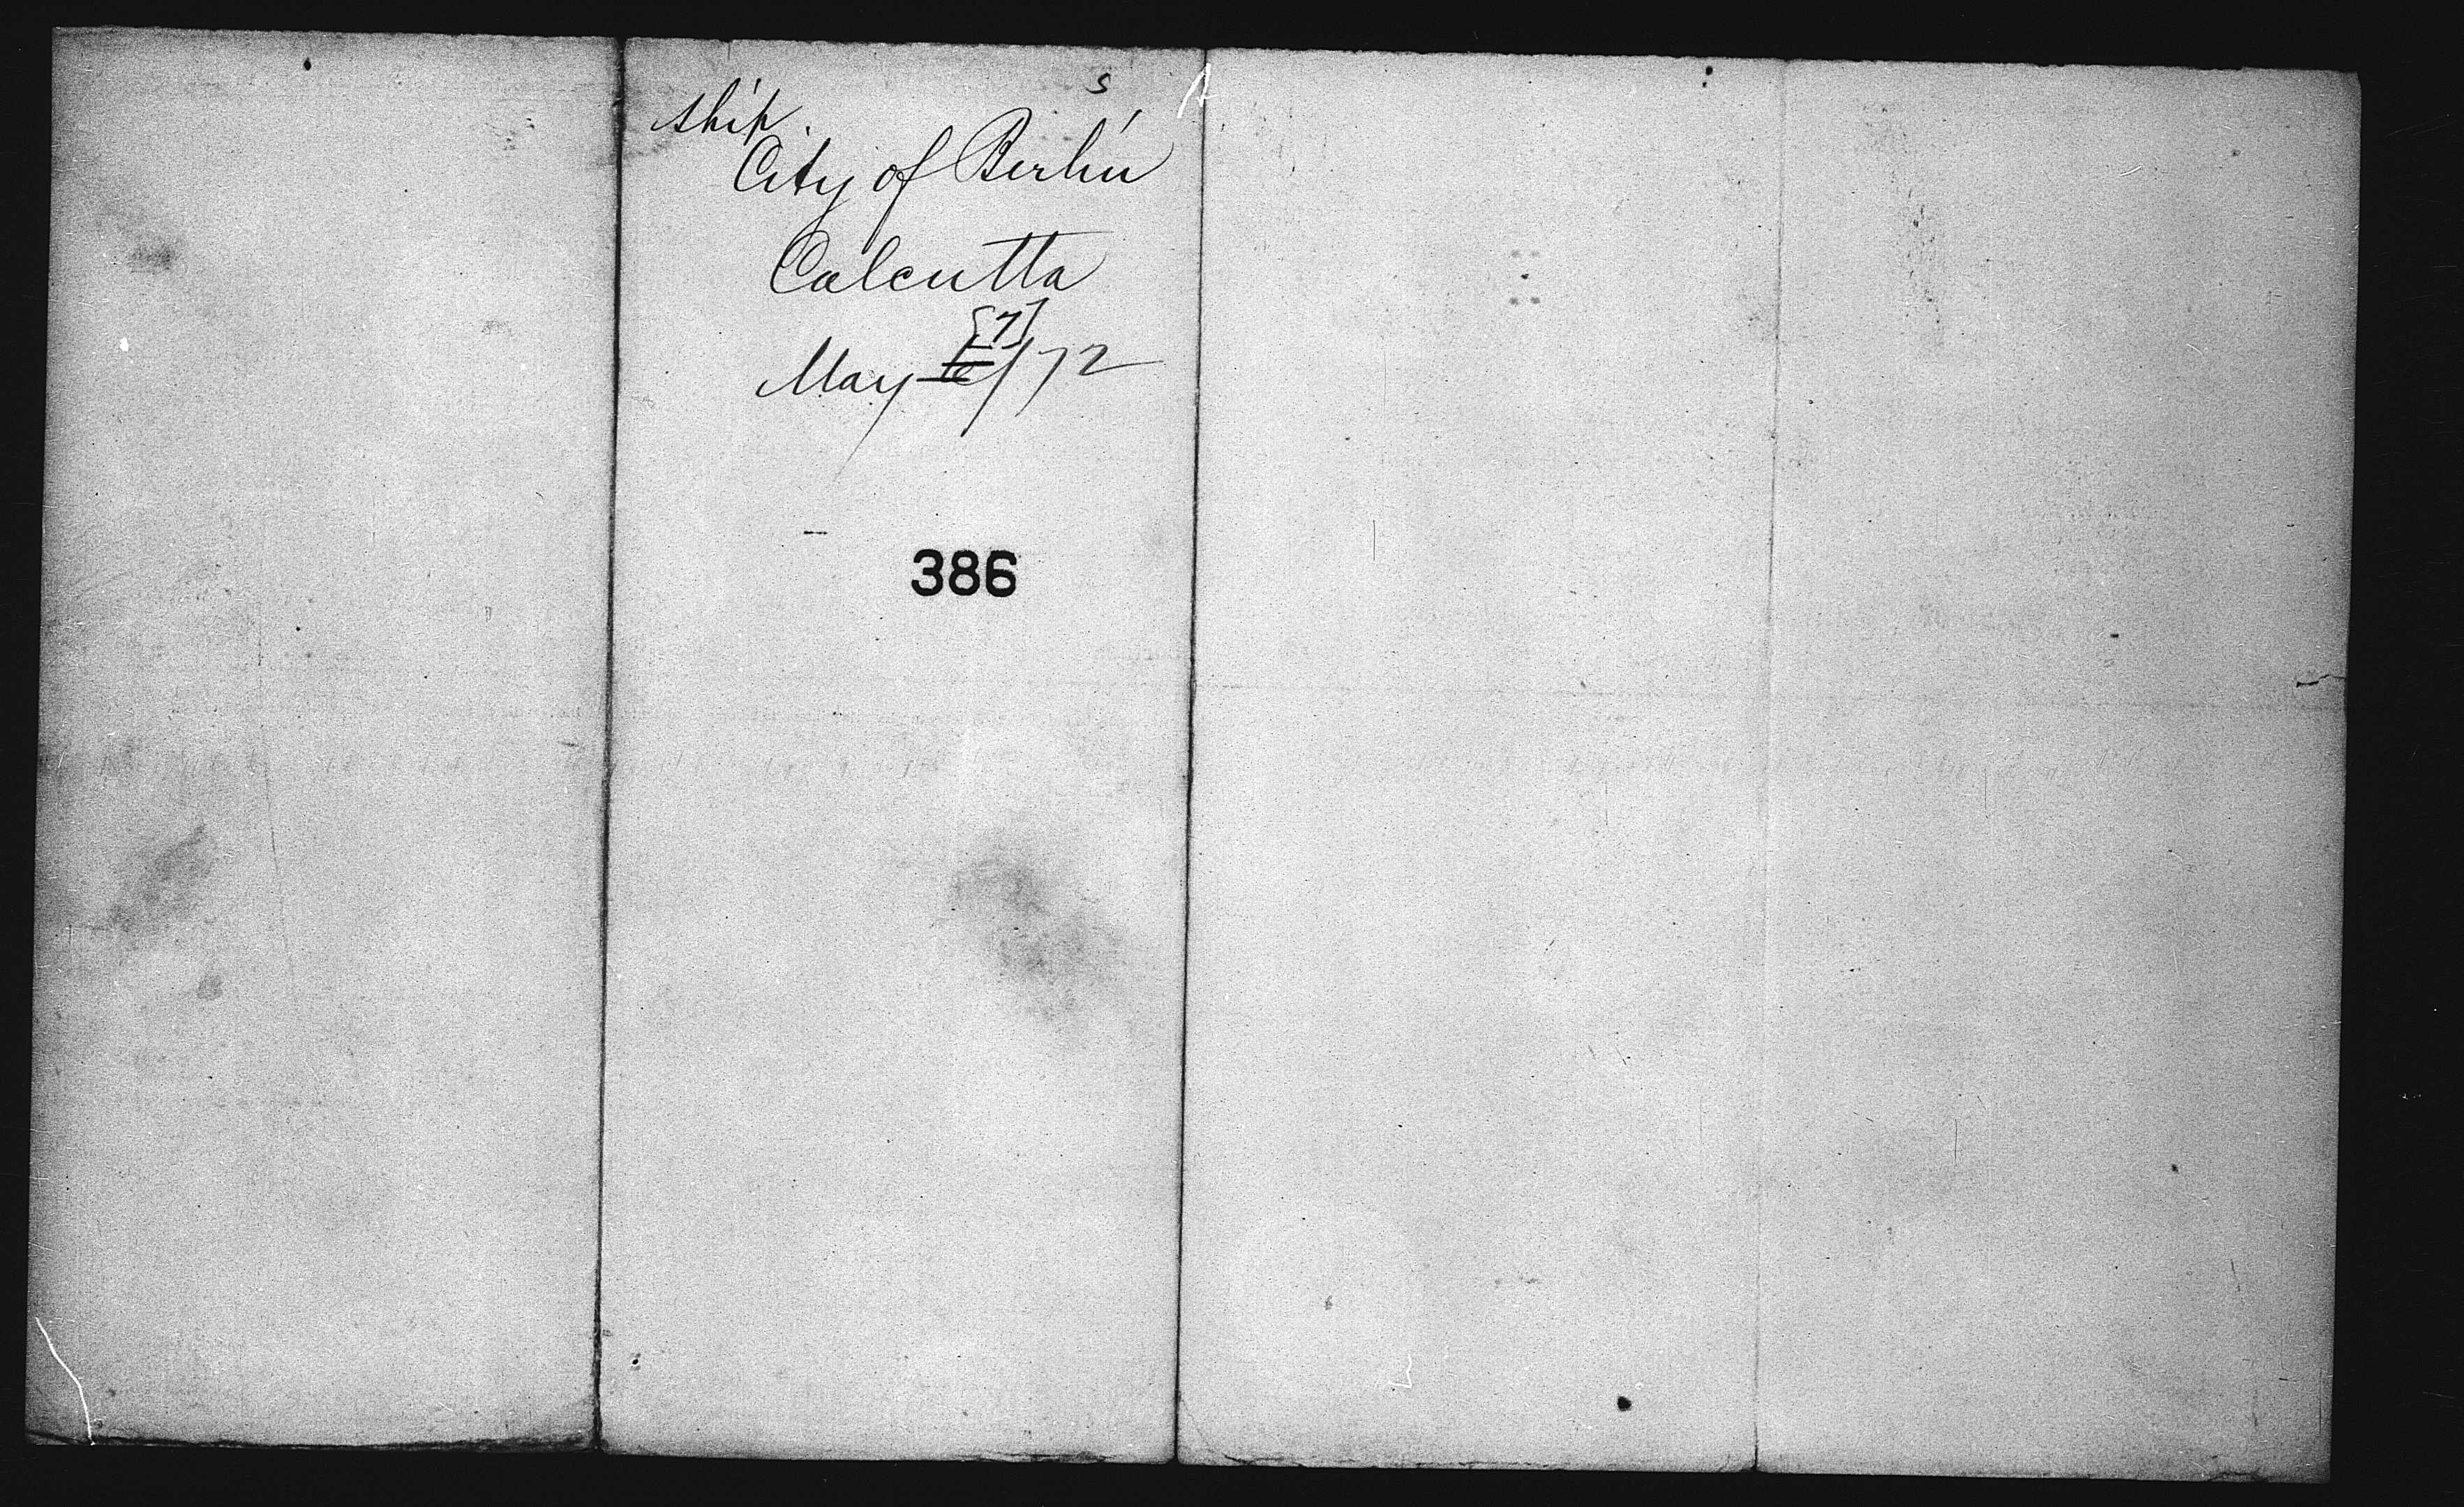 s
ship
City of Berlin
Calcutta
[7]
May 6/72
386